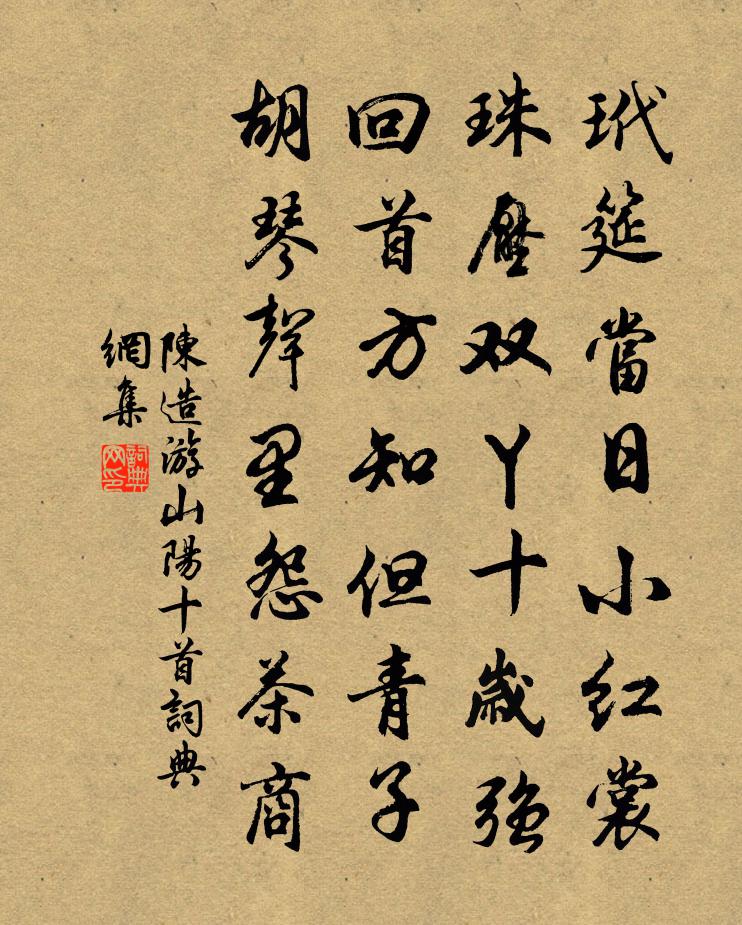 玳筵當日小紅裳
珠壓双丫十歲強
回首方知但青子
胡琴聲里怨茶商
陳造游山陽十首詞典
網集
詞典網印